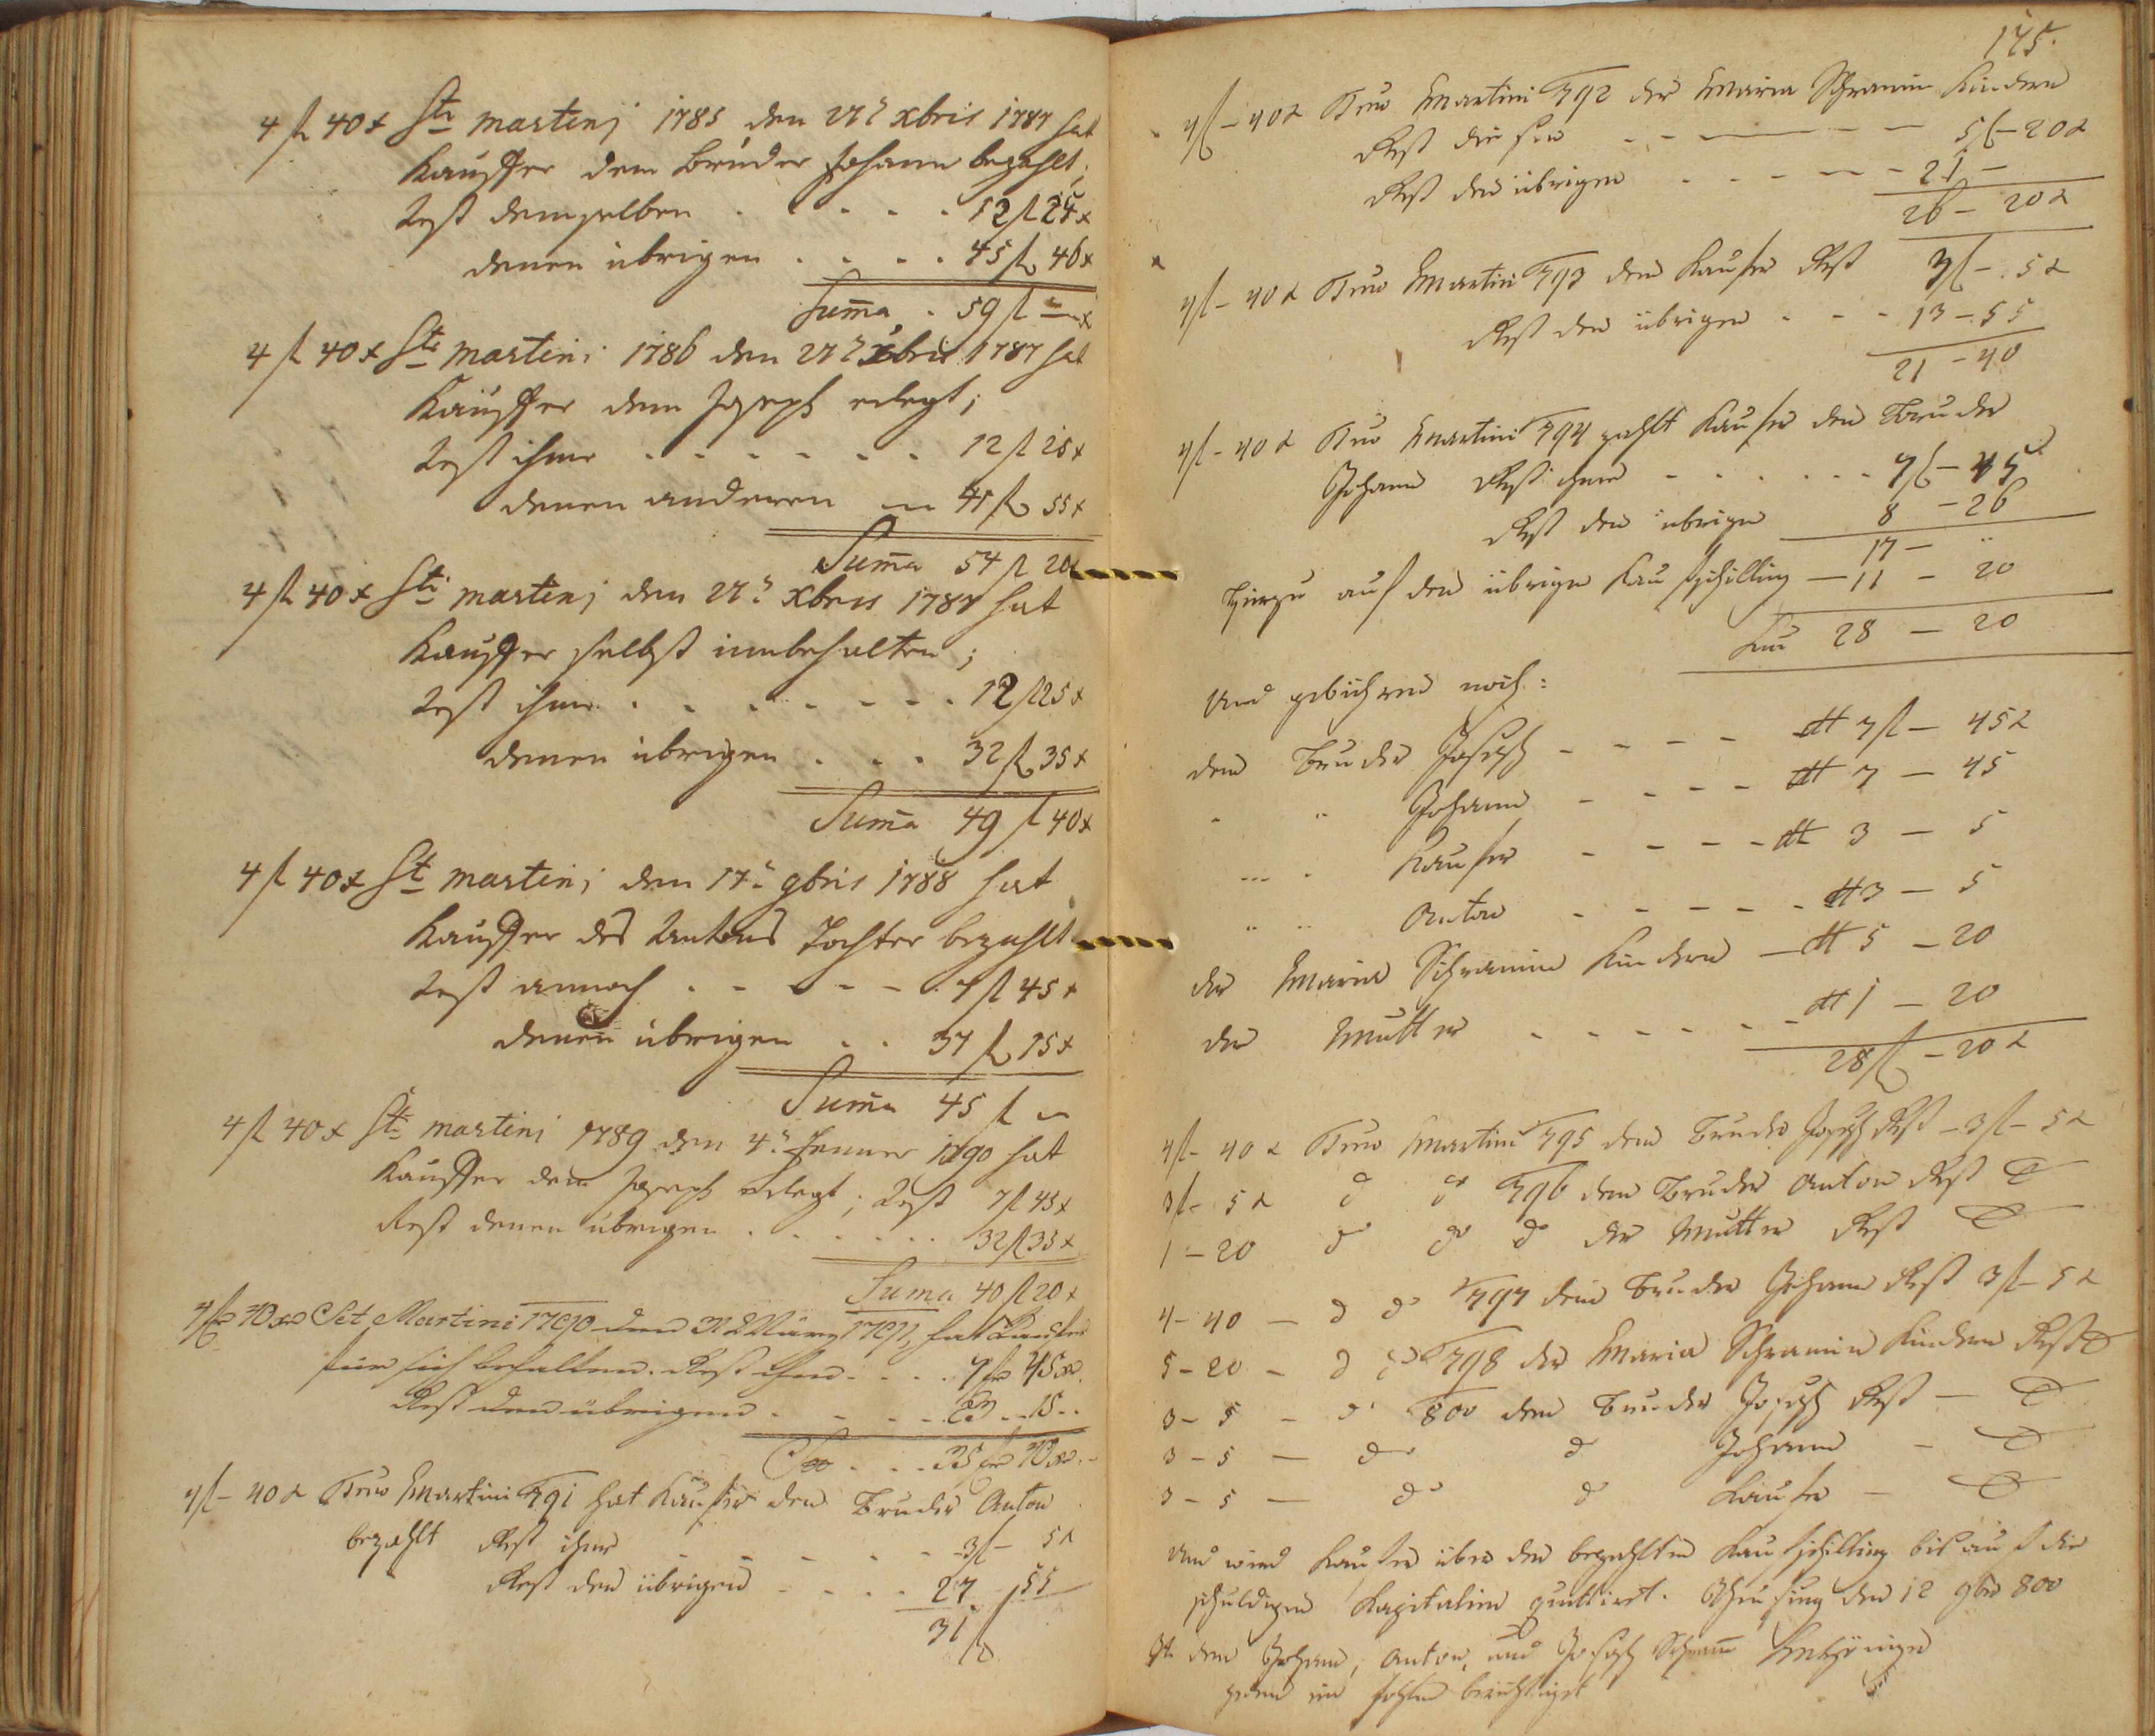 4 fl 40 x Sti Martinj 1785 den 27ᵗ xbris 1787 hat
Kauffer dem Bruder Johann bezahlt;
Rest demselben . . . . . 12 fl 25 x
denen übrigen . . . . 45 fl 46 x
Suma . 59 fl — x
4 fl 40 x Sti Martini 1786 den 27ᵗ xbris 1787 hat
Kauffer dem Joseph erlegt;
Rest ihme . . . . . . 12 fl 25 x
denen anderen — 41 fl 55 x
Suma 54 fl 20 x
4 fl 40 x Sti Martinj den 27ᵗ xbris 1787 hat
Kauffer selbst innbehalten;
Rest ihme . . . . . . . 12 fl 25 x
denen übrigen . . . 32 fl 35 x
Suma 49 fl 40 x
4 fl 40 x St Martinj den 17ᵗ 9bris 1788 hat
Kauffer des Antons Tochter bezahlt
Rest annoch . . . . . . 7 fl 45 x
denen übrigen . . 37 fl 15 x
Suma 45 fl —
4 fl 40 x Sti Martini 1789 den 4ᵗ Jenner 1790 hat
Kauffer dem Joseph erlegt; Rest 7 fl 45 x
Rest denen übrigen . . . . . . 32 fl 35 x
Suma 40 fl 20 x
4 fl 40 x St Martini 1790 den März 1791, hat Kaufer
für sich behalten. Rest ihm . . . . 7 fl 45 x.
Rest den übrigen . . . . 15 . .
35 fl 40 x.
4 fl - 40 x Tno Martini 791 hat Kaufer dem Bruder Anton
bezahlt Rest ihme - - - - - 3 fl - 5 x
Rest den übrigen - - - - 27 - 55
31 fl
175.
4 fl - 40 x Tno Martini 792 der Maria Schramin Kindern
Rest - - - - - 5 fl - 20 x
Rest den übrigen - - - - - 21 -
26 - 20 x
4 fl - 40 x Tno Martini 793 dem Kaufer Rest 7 fl - 5 x
Rest den übrigen - - - 13 - 55
21 - 40
4 fl - 40 x Tno Martini 794 zahlt Kaufer dem Bruder
Johann Rest ihme - - - - - - 7 fl - 45
Rest den übrigen 8 - 26
17 - ..
Hierzu auf den übrigen Kaufschilling — 11 - 20
28 - 20
Und gebühren noch:
dem Bruder Joseph - - - - 7 fl - 45 x
" " Johann - - - - 7 - 45
" " Kaufer - - - - 3 - 5
" " Anton - - - - - 3 - 5
der Maria Schramin Kindern — 5 - 20
der Mutter - - - - - - 1 - 20
28 fl - 20 x
4 fl - 40 x Tno Martini 795 dem Bruder Joseph Rest - 3 fl - 5 x
3 fl - 5 x do do 796 dem Bruder Anton Rest
1 - 20 do do do der Mutter Rest
4 - 40 — do do 797 dem Bruder Johann Rest 3 fl - 5 x
5 - 20 - do do 798 der Maria Schramin Kindern Rest
3 - 5 - do 800 dem Bruder Joseph Rest —
3 - 5 — do do Johann -
3 - 5 — do do Kaufer —
Und wird Kaufer über den bezahlten Kaufschilling bis auf die
schuldigen Kapitalien quittiert. den 12 9ber 800
dem Johann, Anton, und Joseph Schram